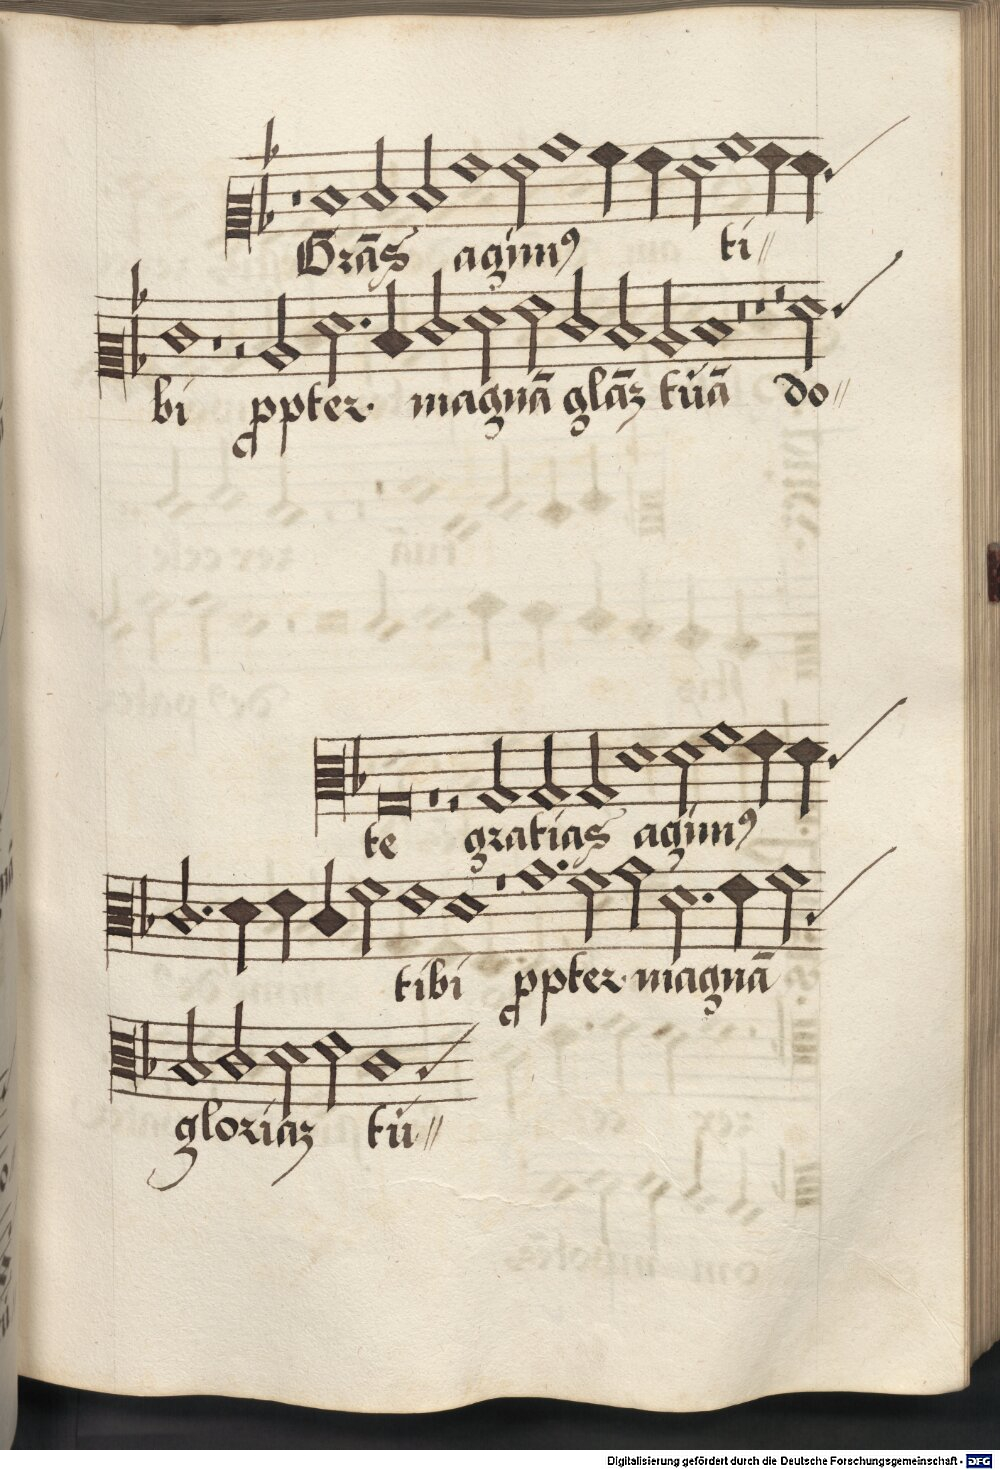 Grās agimꝰ ti
bi ꝓpter magnā glāꝫ tuā do
te gratias agimꝰ
tibi ꝓpter magnā
gloriaꝫ tu
Digitalisierung gefördert durch die Deutsche Forschungsgemeinschaft - DFG